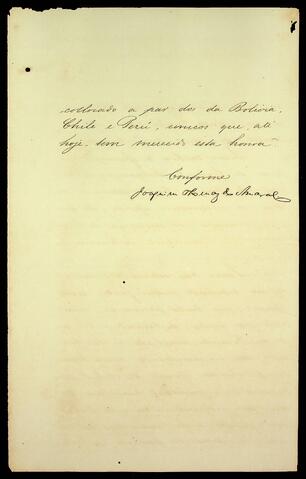 collocado a par dos da Bolivia,
Chile e Perú, unicos que, até
hoje, tem merecido esta honra
Conforme
Joaquim Thomaz do Amaral